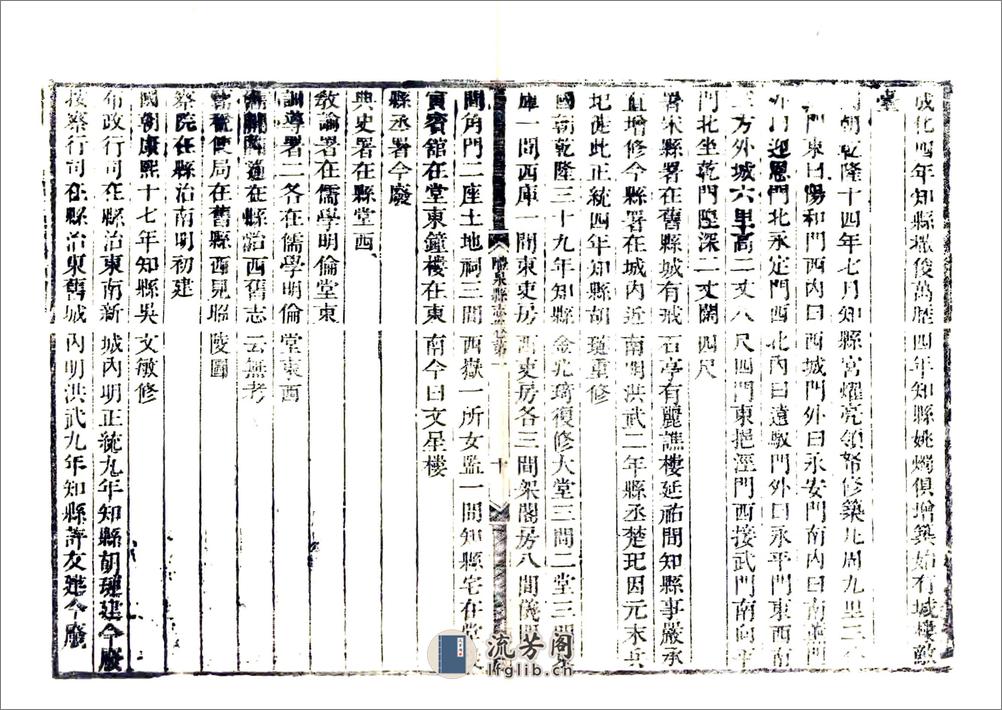 成化四年知縣 俊萬歷四年知縣姚燭俱增築始有城樓敵
臺
朝乾隆十四年七月知縣宮耀亮領帑修築凡周九里三
門東曰陽和門西內曰西城門外曰永安門南內曰南薰門
外曰迎恩門北永定門西北內曰遠馭門外曰永平門東西南
三方外城六里高二丈八尺四門東挹涇門西接武門南向
門北坐乾門隍深二丈闊四尺
署宋縣署在舊縣城有 石亭有麗譙樓延祐間知縣事嚴承
直增修今縣署在城內近南明洪武二年縣丞楚玘因元末兵
圮徙此正統四年知縣胡璉重修
國朝乾隆三十九年知縣金光琦復修大堂三間二堂三間
庫一間西庫一間東吏房西吏房各三間架閣房八間儀門
間角門二座土地祠三間西獄一所女監一間知縣宅在堂
醴泉縣志卷第
十
寅賓舘在堂東鐘樓在東南今曰文星樓
縣丞署今廢
典史署在縣堂西
敎諭署在儒學明倫堂東
訓導署二各在儒學明倫堂東西
在縣治西舊志云無考
局在舊縣西見昭陵圖
察院在縣治南明初建
國朝康熙十七年知縣吳文敏修
布政行司在縣治東南新城內明正統九年知縣胡璉建今廢
按察行司在縣治東舊城內明洪武九年知縣許友進今廢
流芳阁
lfglib.cn